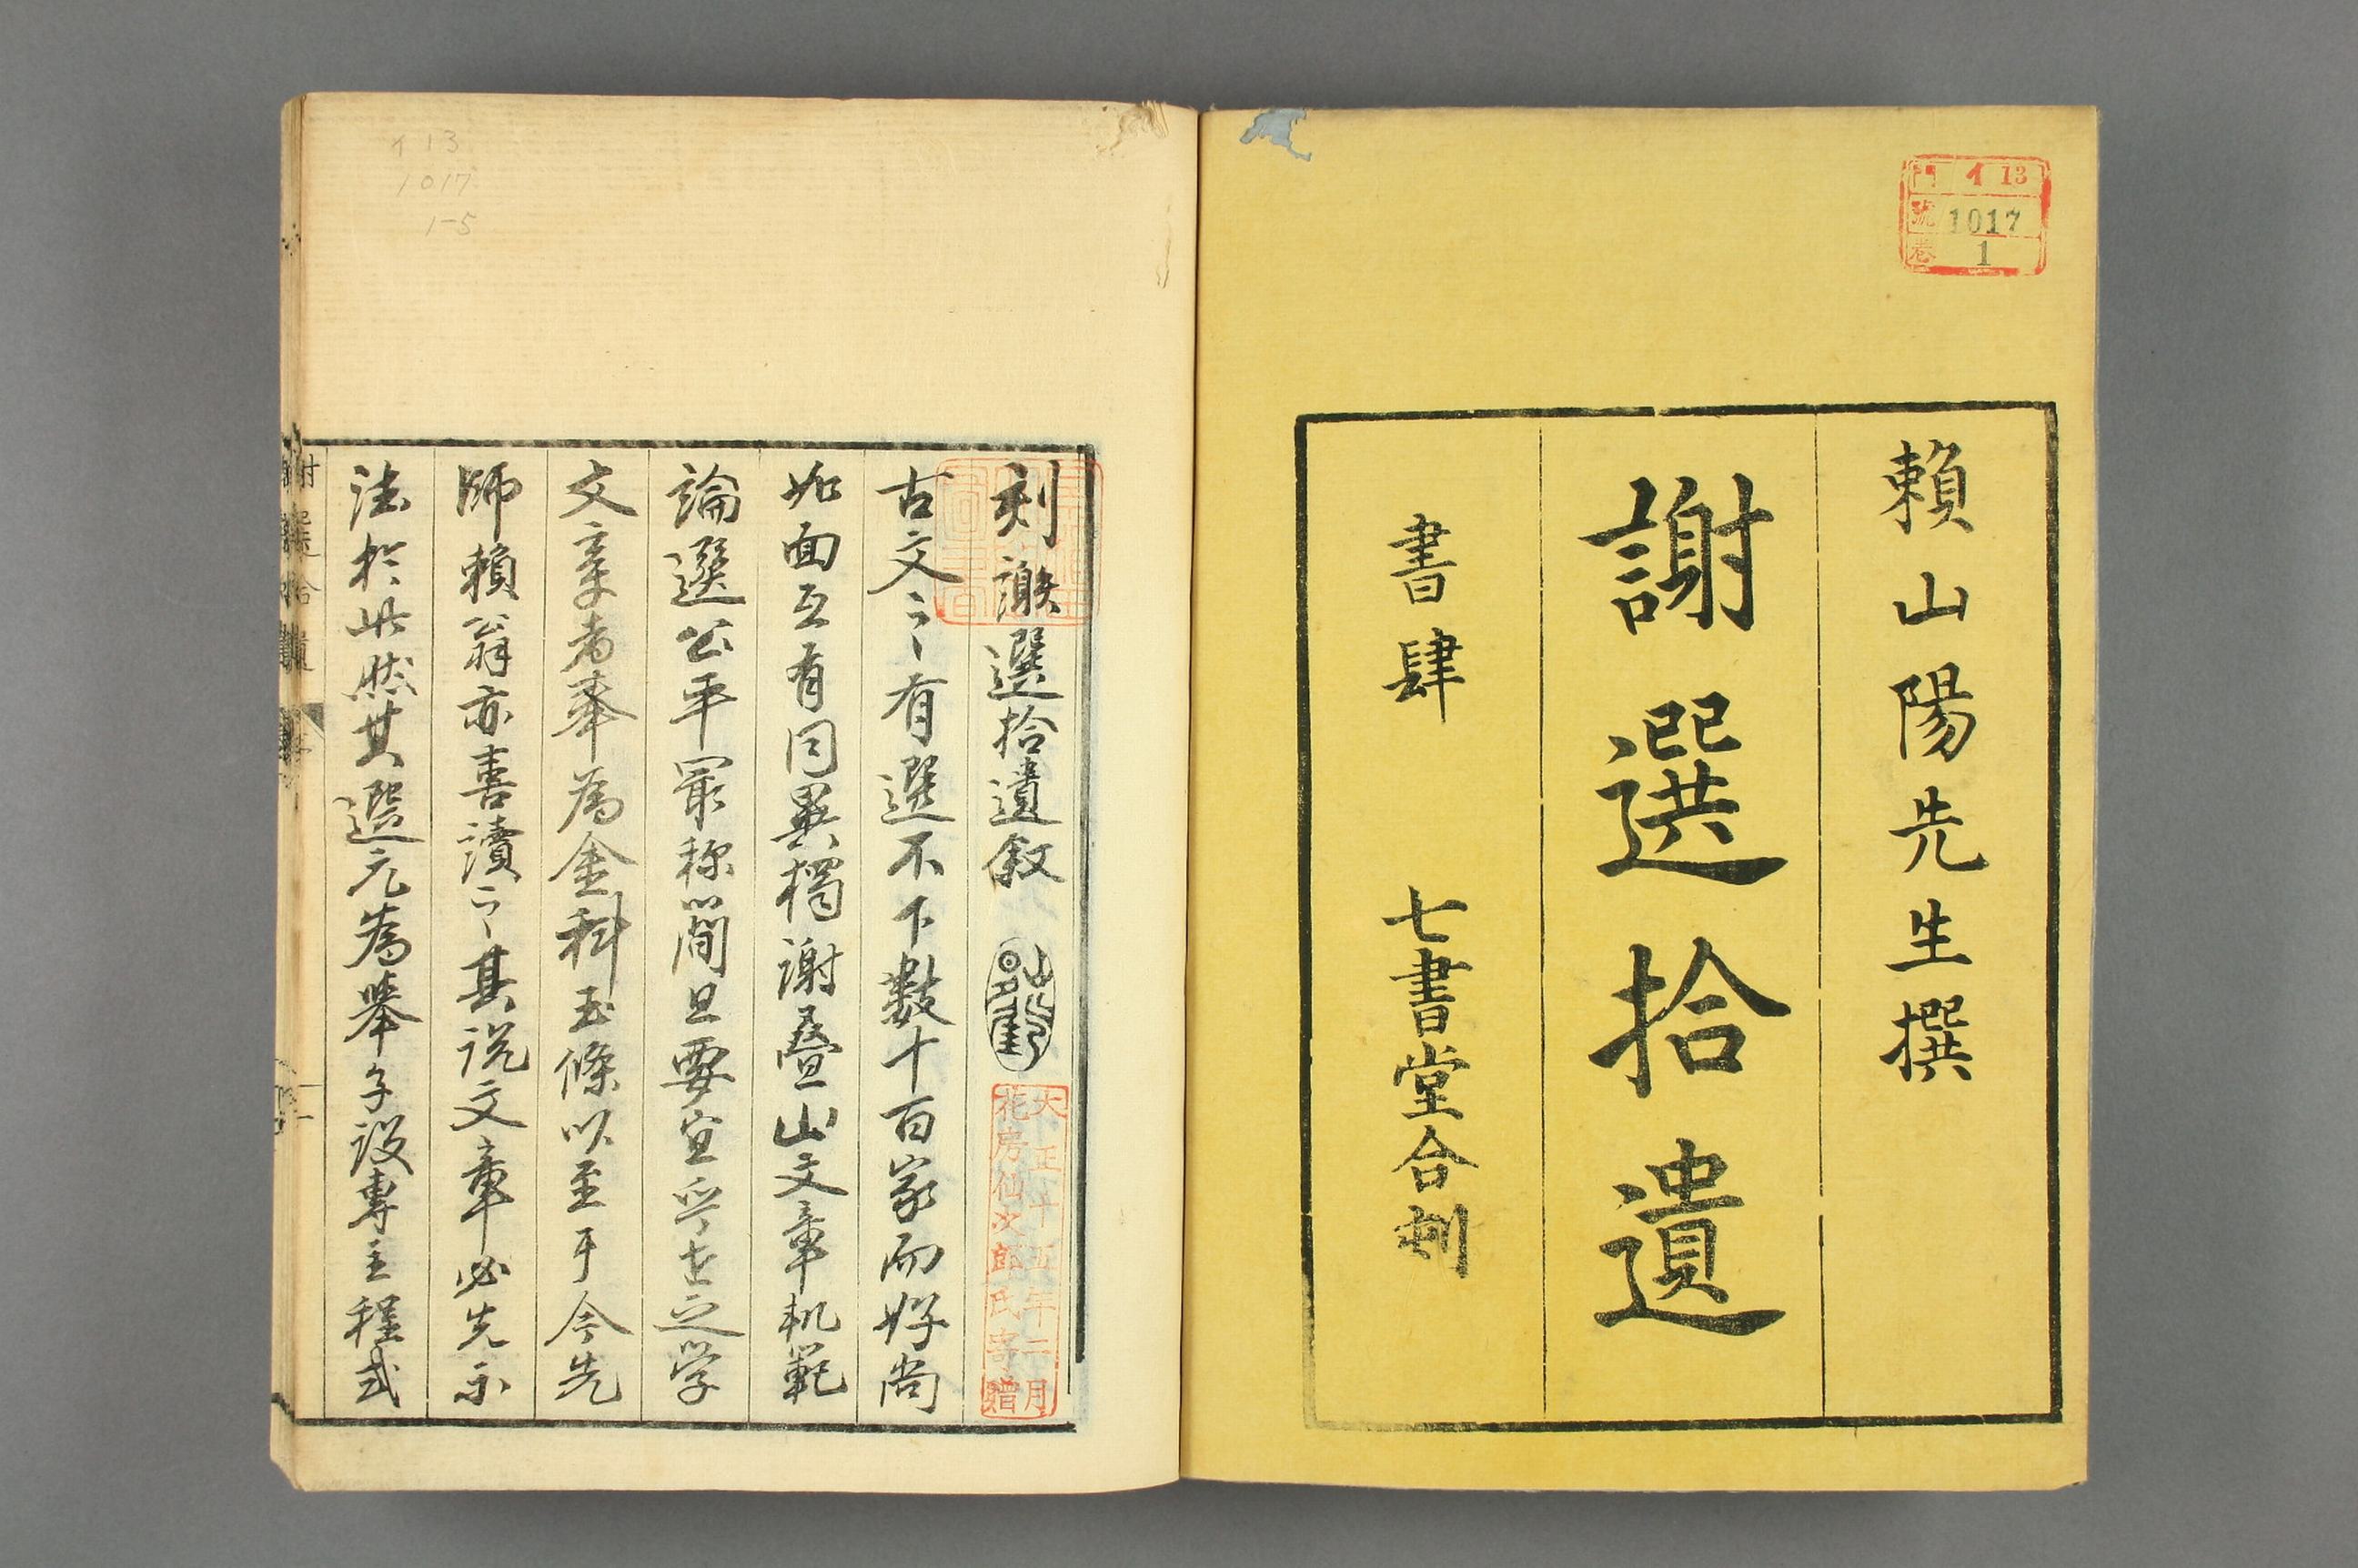 門 イ 13
號 1017
巻 1
賴山陽先生撰
謝選拾遺
書肆 七書堂合刻
イ 13
1017
1-5
刻謝選拾遺敘
大正十五年二月
花房仙次郎氏寄贈
古文之有選不下數十百家而好尚
如面互有同異獨謝疊山文章軌範
論選公平冣称簡且要宜乎世之学
文章者奉為金科玉條以至于今先
師賴翁亦喜讀之其説文章必先示
法於此然其選元為舉子設專主程式